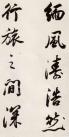 缅風濤浩然
行旅之間深